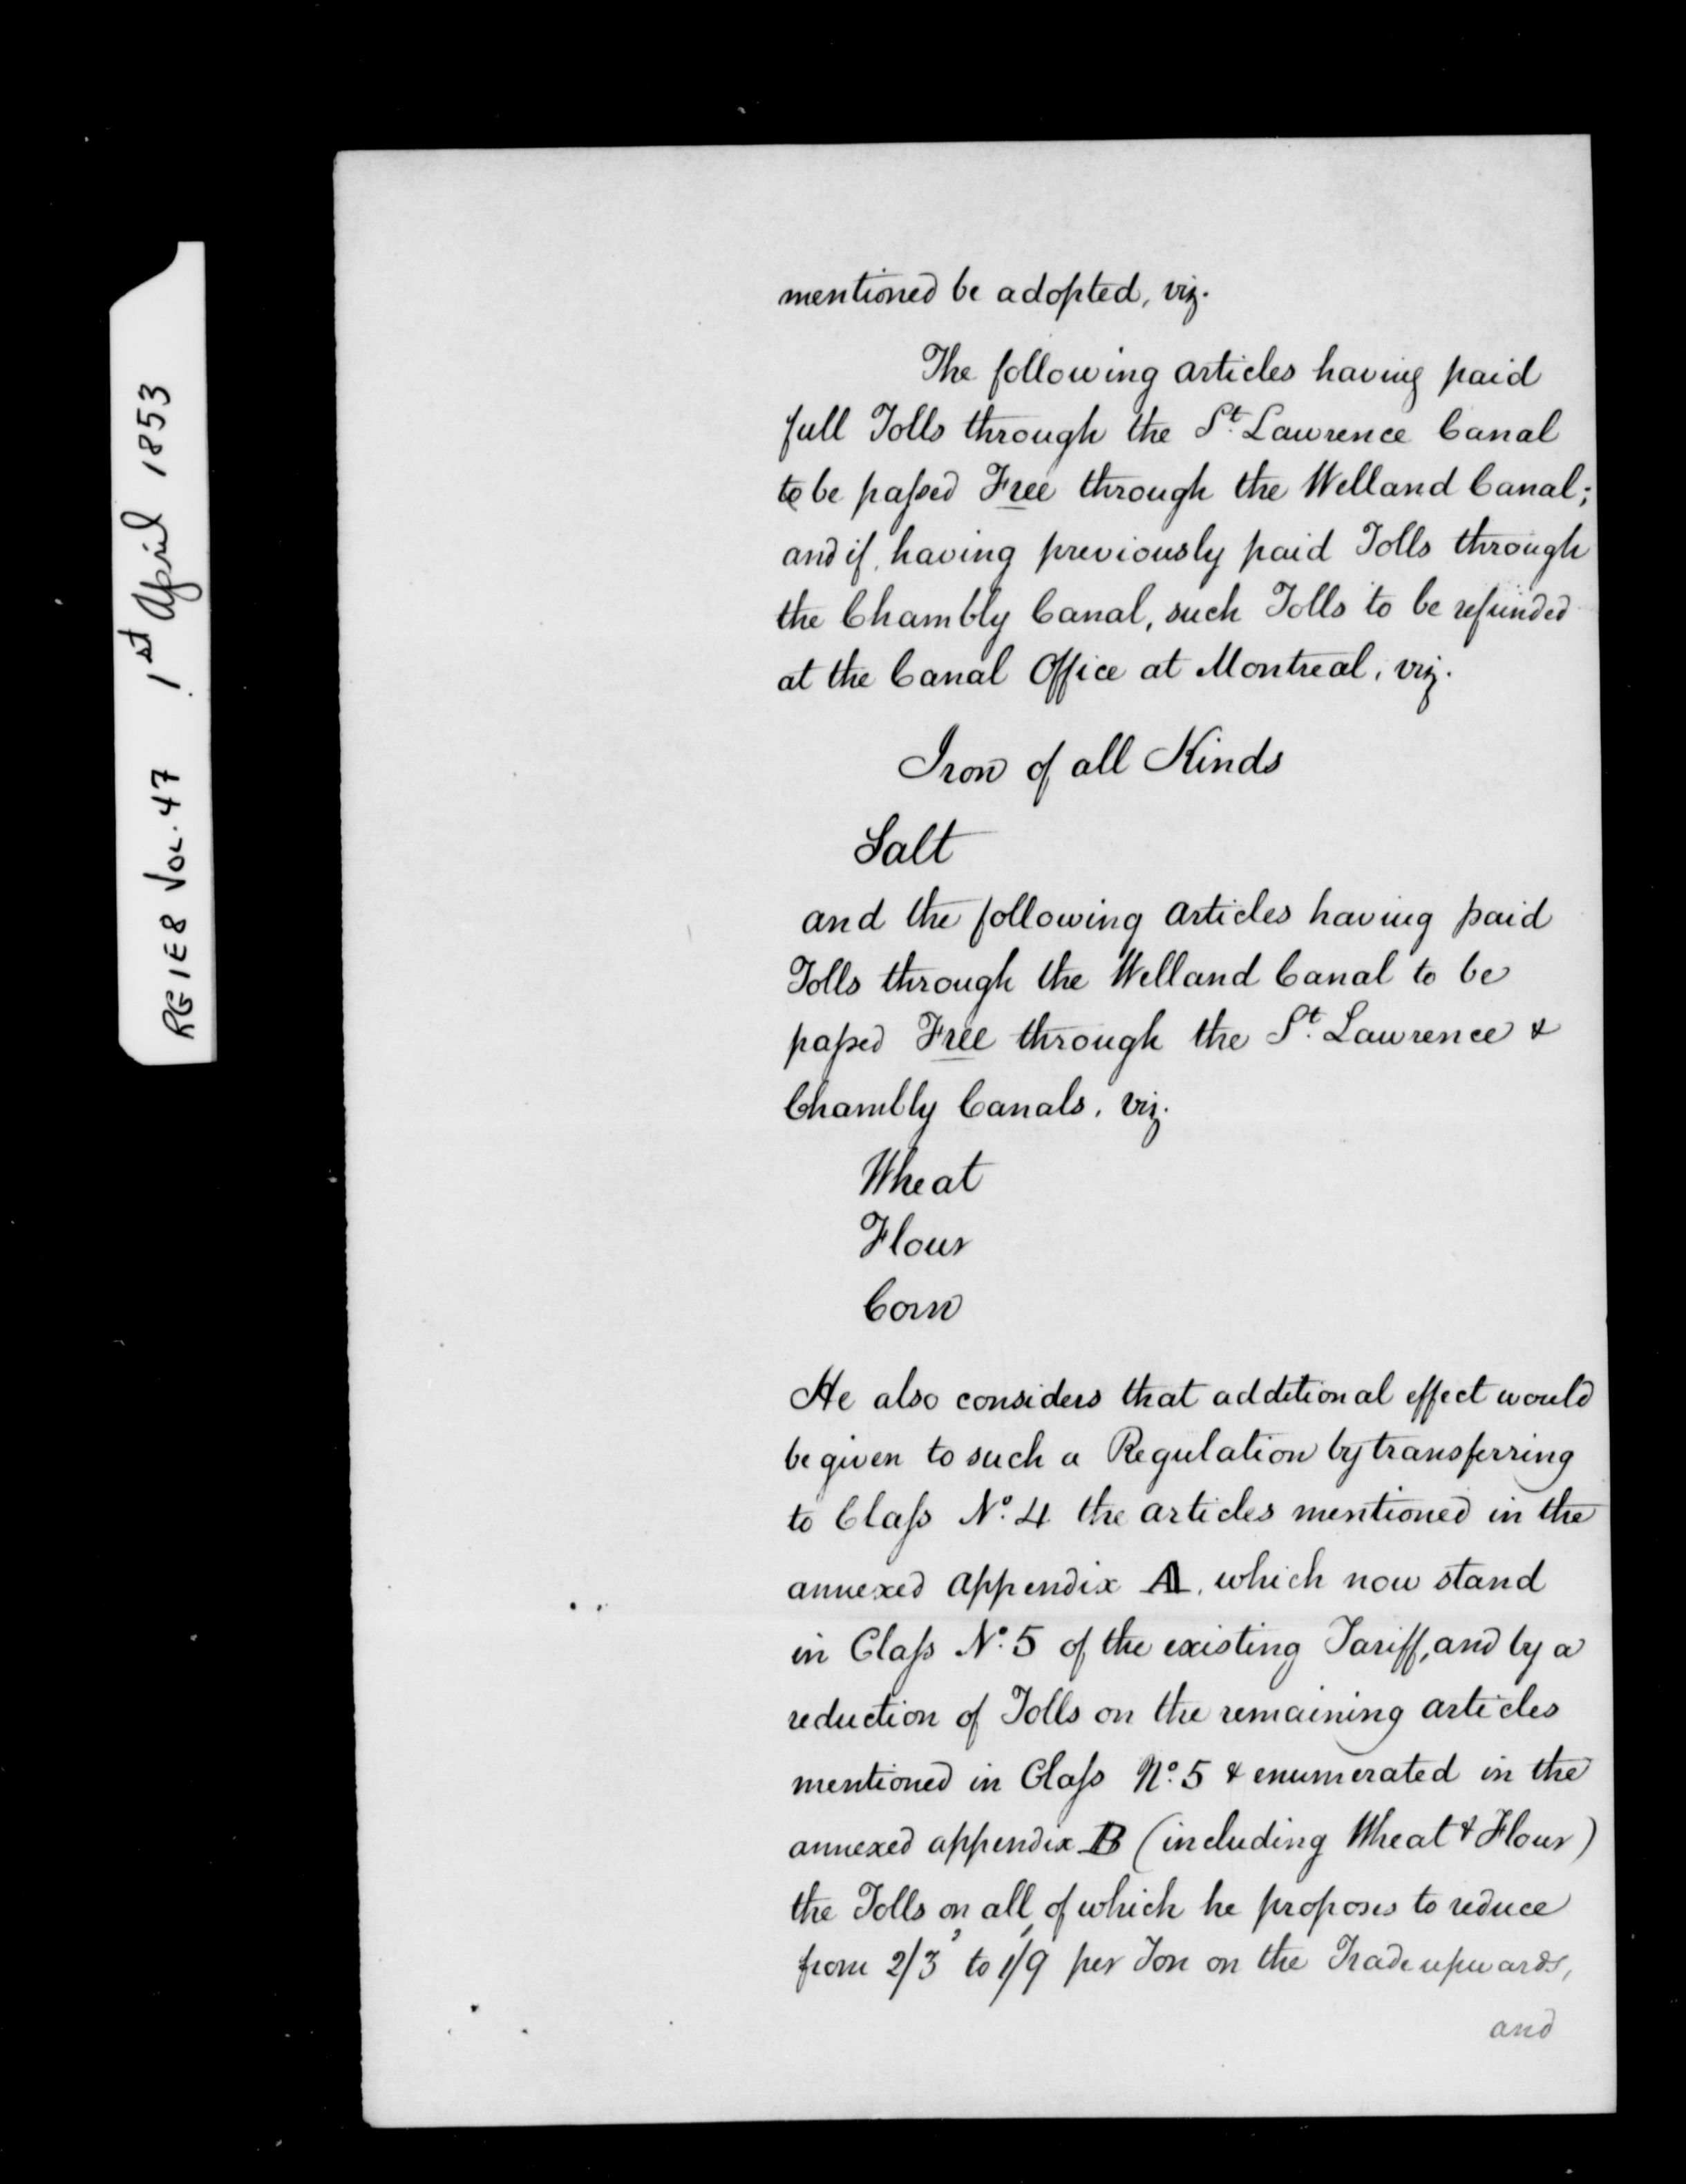 RG1E8 VOL. 47 1st April 1853
mentioned be adopted, viz.
The following articles having paid
full Tolls through the St. Lawrence Canal
to be paſsed Free through the Welland Canal;
and if, having previously paid Tolls through
the Chambly Canal, such Tolls to be refunded
at the Canal Office at Montreal, viz.
Iron of all Kinds
Salt
and the following articles having paid
Tolls through the Welland Canal to be
paſsed Free through the St. Lawrence &
Chambly Canals, viz.
Wheat
Flour
Corn
He also considers that additional effect would
be given to such a Regulation by transferring
to Claſs No. 4 the articles mentioned in the
annexed appendix A, which now stand
in Claſs No. 5 of the existing Tariff, and by a
reduction of Tolls on the remaining articles
mentioned in Claſs No. 5 & enumerated in the
annexed appendix B (including Wheat & Flour)
the Tolls on all, of which he proposes to reduce
from 2/3 to 1/9 per Ton on the Trade upwards,
and